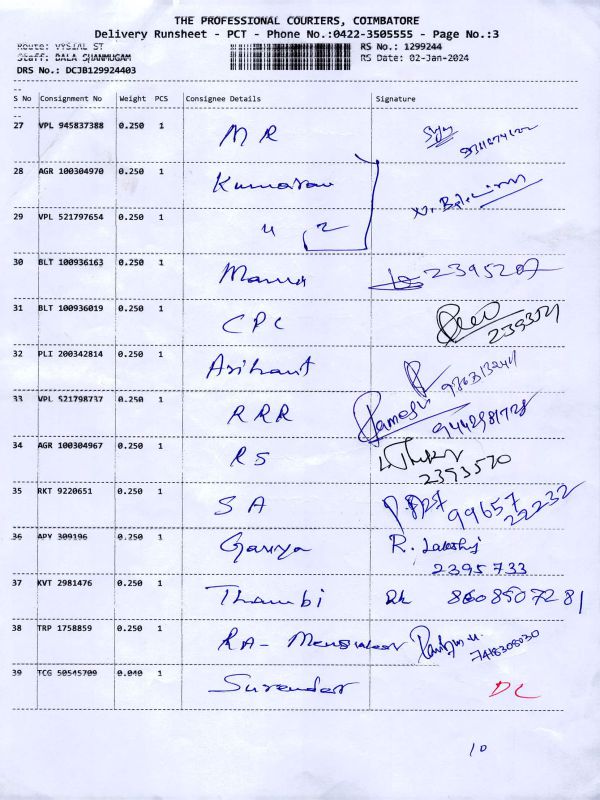 THE PROFESSIONAL COURIERS, COIMBATORE
Delivery Runsheet - PCT - Phone No.:0422-3505555 - Page No.:3
Route: VYSIAL ST RS No.: 1299244
Staff: BALA SHANMUGAM RS Date: 02-Jan-2024
DRS No.: DCJB129924403
S No Consignment No Weight PCS Consignee Details Signature
27 VPL 945837388 0.250 1 M R
28 AGR 100304970 0.250 1 Kumaran
29 VPL 521797654 0.250 1 " 2
30 BLT 100936163 0.250 1 2395207
31 BLT 100936019 0.250 1 CPC
32 PLI 200342814 0.250 1 Arihant
33 VPL 521798737 0.250 1 RRR Ramesh
9442981728
34 AGR 100304967 0.250 1 RS
2393570
35 RKT 9220651 0.250 1 S A 99657
22232
36 APY 309196 0.250 1 R. Lakshj
2395733
37 KVT 2981476 0.250 1 Thambi Rk 8608507281
38 TRP 1758859 0.250 1 RA-
7418308030
39 TCG 50545709 0.040 1 Surender DC
10